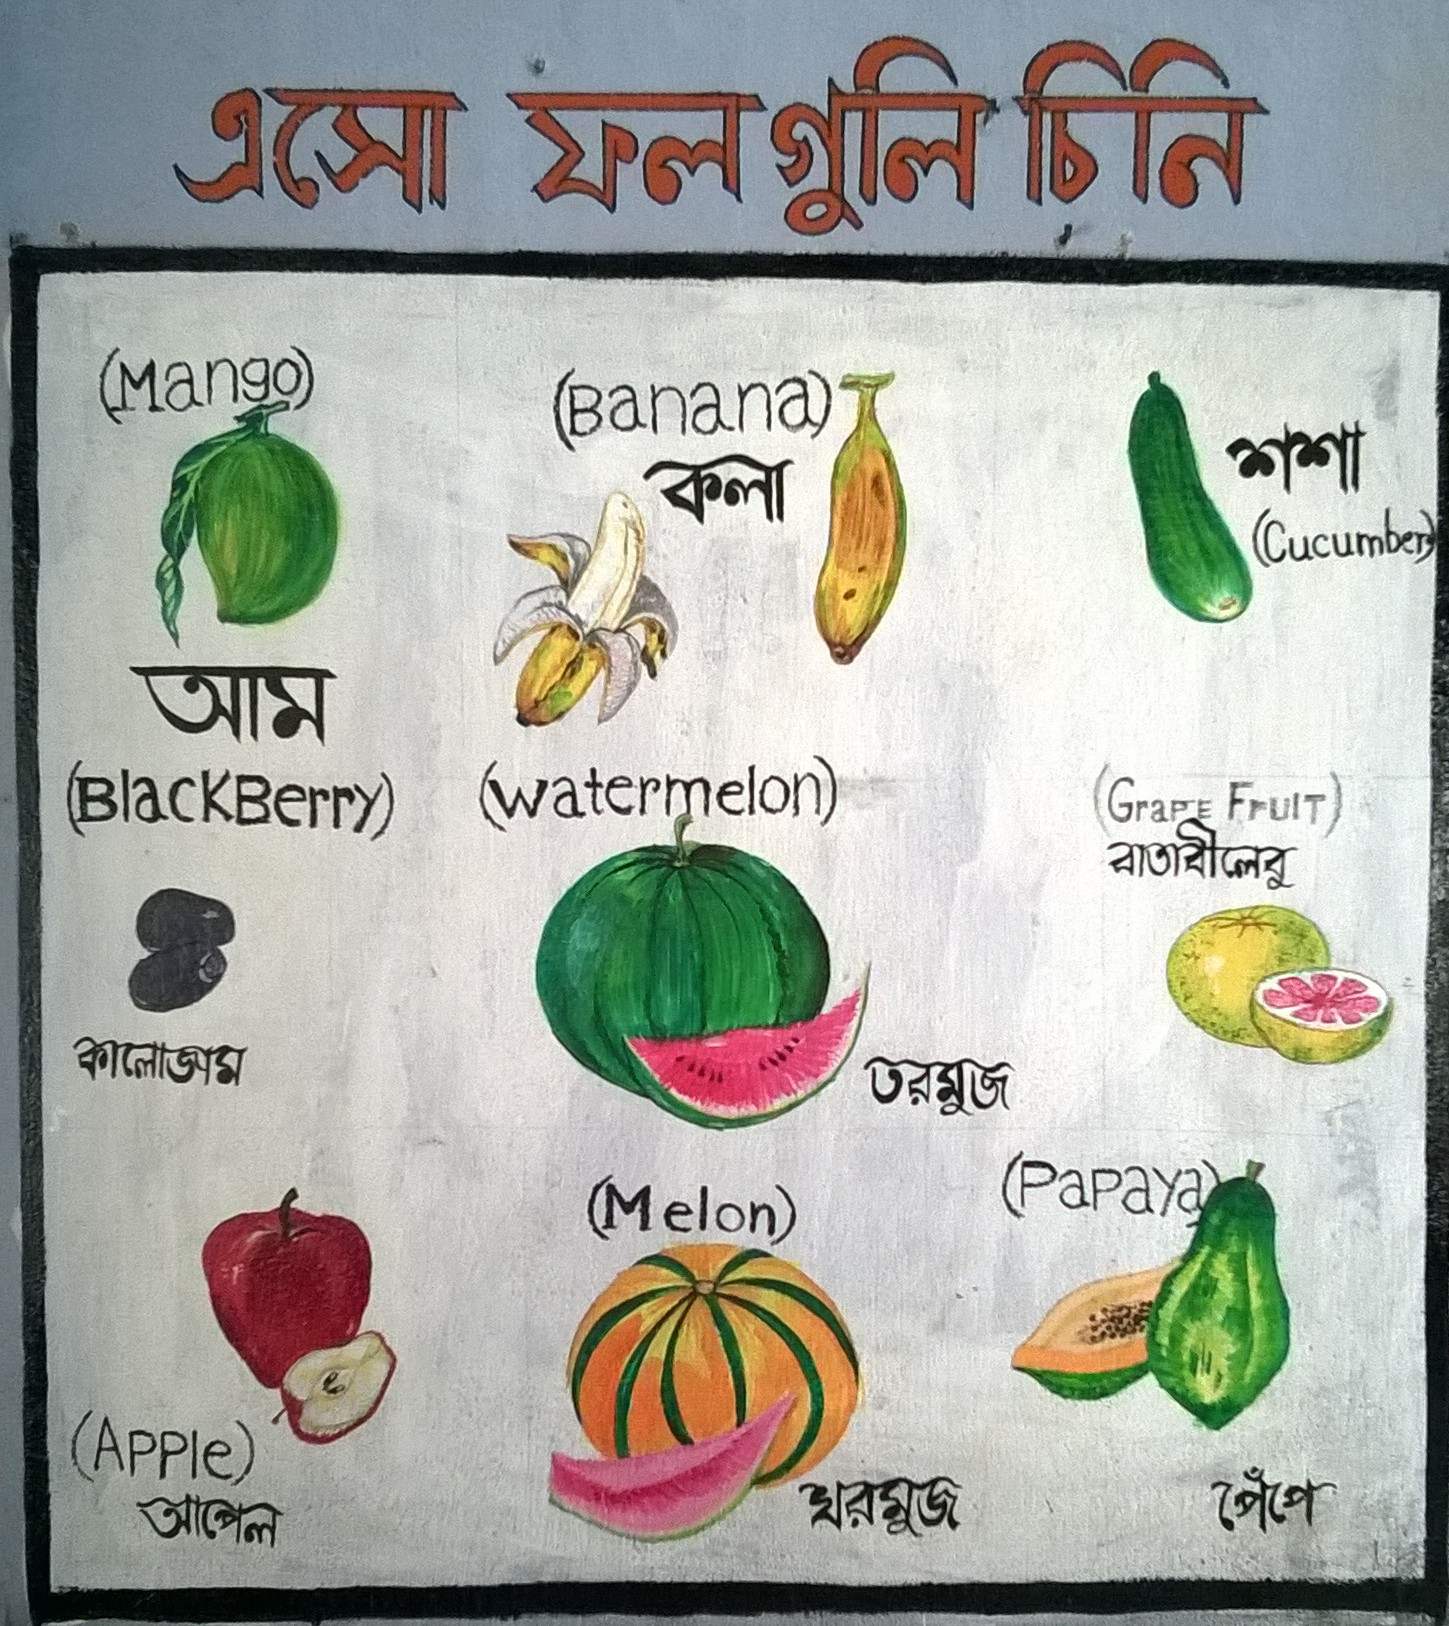 এসো ফলগুলি চিনি
(Mango)
আম
(Banana)
কলা
শশা
(Cucumber)
(BlackBerry)
কালোজাম
(Watermelon)
তরমুজ
(Grape Fruit)
বাতাবীলেবু
(Apple)
আপেল
(Melon)
খরমুজ
(Papaya)
পেঁপে